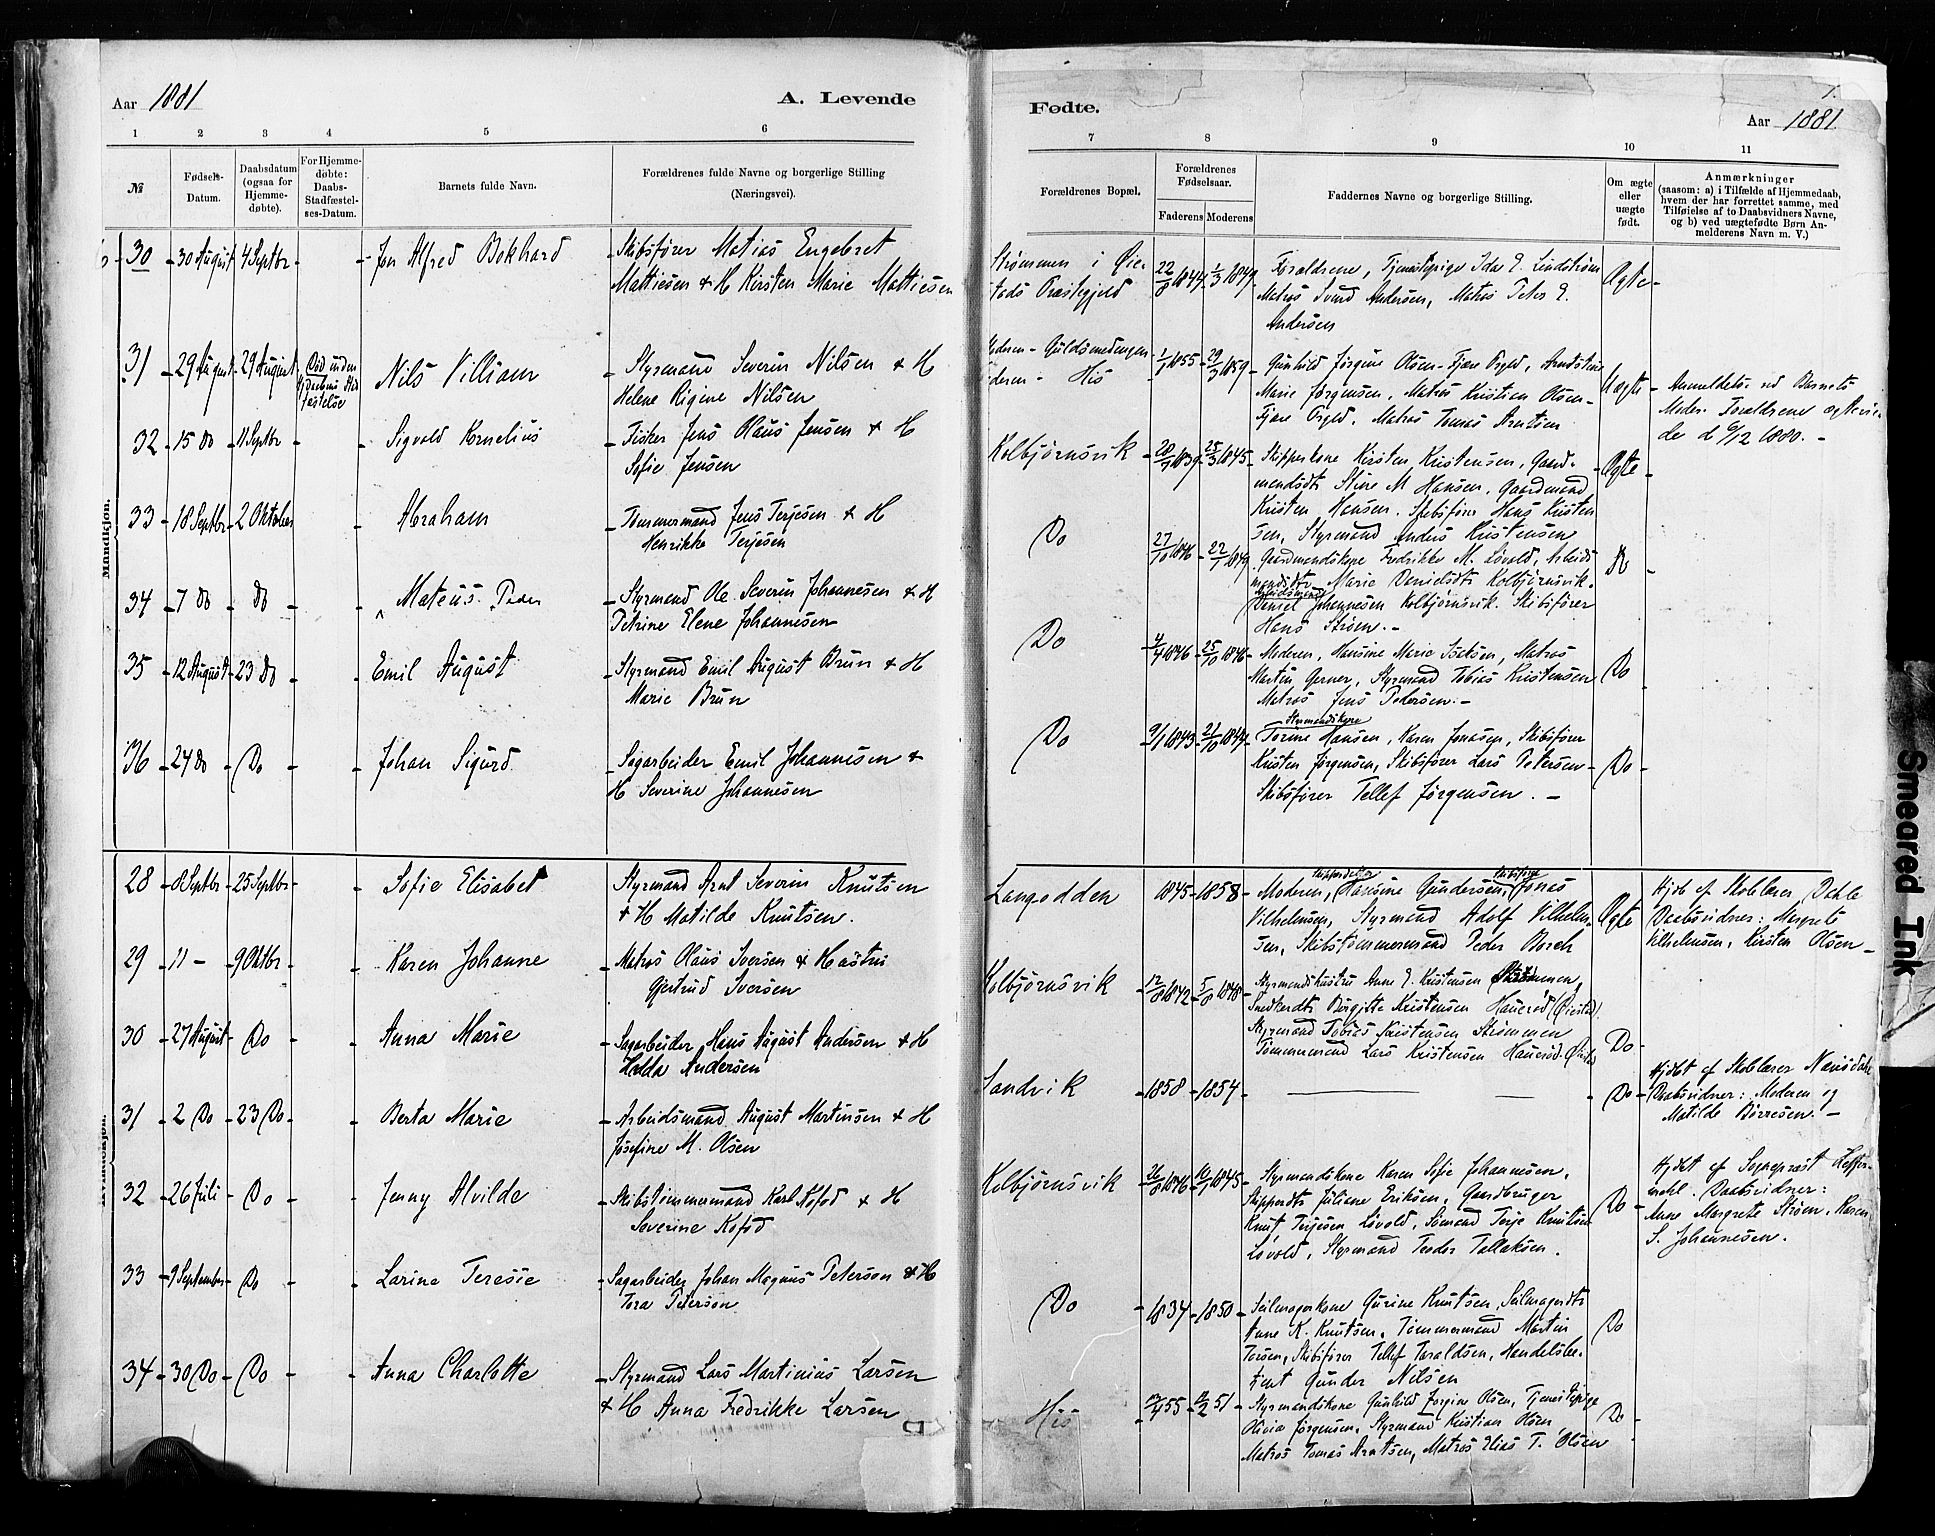 Aar 1881
A. Levende
1 2 3 4 5 6
№
Fødsels-
Datum.
Daabsdatum
(ogsaa for
Hjemme-
døbte).
For Hjemme-
døbte:
Daabs-
Stadfæstel-
ses-Datum.
Barnets fulde Navn.
Forældrenes fulde Navne og borgerlige Stilling
(Næringsvei).
Mandkjøn.
30 30 August 4 Septbr Jon Alfred Bokhard Skibsfører Matias Engebret
Mattiesen & H Kirsten Marie Mattiesen
31 29 August 29 August Død inden Nils Villiam Styrmand Severin Nilsen & H
Helene Rigine Nilsen
32 15 do 11 Septbr Sigvald Kornelius Fisker Jens Olaus Jensen & H
Sofie Jensen
33 18 Septbr 2 Oktober Abraham Tømmermand Jens Terjesen & H
Henrikke Terjesen
34 7 do do Mateus Peder Styrmand Ole Severin Johannesen & H
Petrine Elene Johannesen
35 12 August 23 do Emil August Styrmand Emil August Brun & H
Marie Brun
36 24 do Do Johan Sigurd Sagarbeider Emil Johannesen &
H Severine Johannesen
28 8 Septbr 25 Septbr Sofie Elisabet Styrmand Arnt Severin Knutsen
& H Matilde Knutsen.
29 11 – 9 Oktbr Karen Johanne Matros Olaus Iversen & Hustru
Gjertrud Iversen
30 27 August Do Anna Marie Sagarbeider Hans August Andersen & H
Hulda Andersen
31 2 Do 23 Do Berta Marie Arbeidsmand August Martinsen & H
Josefine M. Olsen
32 26 Juli Do Jenny Alvilde Skibstømmermand Karl Kofod & H
Severine Kofod
33 9 September Do Larine Teresie Sagarbeider Johan Magnus Peterson & H
Tora Peterson
34 30 Do Do Anna Charlotte Styrmand Lars Martinius Larsen
& H Anna Fredrikke Larsen
Fødte.
1.
Aar 1881
7 8 9 10 11
Forældrenes Bopæl.
Forældrenes
Fødselsaar.
Faderens Moderens
Faddernes Navne og borgerlige Stilling.
Om ægte
eller
uægte
født.
Anmærkninger
(saasom: a) i Tilfælde af Hjemmedaab,
hvem der har forrettet samme, med
Tilføielse af to Daabsvidners Navne,
og b) ved uægtefødte Børn An-
melderens Navn m. V.)
Strømmen i Øie-
stads Præstegjeld 22/8 1844 1/3 1849 Forældrene, Tjenestepige Ida E. Lindstrøm
Matros Svend Andersen, Matros Peter E.
Andersen
Ægte
Guldsmedengen
His 1/1 1855 29/3 1859 Gunhild Jørgine Olsen Fjære Prgld,
Marie Jørgensen, Matros Kristian Olsen
Fjære Prgld. Matros Tomas Arntsen
Uægte
Anmeldets. ved Barnets
Moder. Forældrene ægtevie-
de d 6/12 1880.
Kolbjørnsvik 28/7 1839 25/3 1845 Skipperkone Kirsten Kristensen, Gaard-
mandsdt Stine M Hansen, Gaardmand
Kristen Hansen. Skibsfører Hans Kristen
sen, Styrmand Anders Kristensen
Ægte
Do 27/10 1846 22/1 1849 Gaardmandskone Fredrikke M. Løvold, Arbeids
mandsdtr Marie Danielsdt Kolbjørnsvik.
Arbeidsmand
Daniel Johannesen Kolbjørnsvik. Skibsfører
Hans Strøm.
Do
Do 4/7 1846 25/10 1846 Moderen, Hansine Marie Isaksen, Matros
Martin Gerner, Styrmand Tobias Kristensen
Matros Jens Petersen.
Do
Do 9/1 1843 21/10 1849 Styrmandskone
Torine Hansen, Karen Jonasen, Skibsfører
Kristen Jørgensen, Skibsfører Lars Petersen
Skibsfører Tellef Jørgensen.
Do
Langodden 1845 1858 Moderen, Hansine Gundersen, Jonas
Vilhelmsen, Styrmand Adolf Vilhelm
sen, Skibstømmermand Peder Borch
Ægte
Hjdb. af Skolelærer Dahle
Daabsvidner: Margrete
Vilhelmsen, Kirsten Olsen
Kolbjørnsvik 12/8 1842 5/8 1848 Styrmandshustru Anne E. Kristensen Strømmen,
Snedkerdt Bergitte Kristensen Hauerød (Øiestad).
Styrmand Tobias Kristensen Strømmen
Tømmermand Lars Kristensen Hauerød
Do
Sandvik 1858 1854 Do
Hjdbt af Skolelærer
Daabsvidner: Moderen og
Matilde Børresen.
Kolbjørnsvik 26/8 1846 10/1 1845 Styrmandskone Karen Sofie Johannesen,
Skipperdt Juliane Eriksen, Gaardbruger
Knut Terjesen Løvold, Sømand Terje Knutsen
Løvold, Styrmand Teodor Tallaksen.
Do
Hjdbt af Sogneprest Heffer-
mehl. Daabsvidner:
Anne Margrete Strøm, Karen
S. Johannesen.
Do 1834 1850 Seilmagerkone Gurine Knutsen, Seilmagerdt
Anne K. Knutsen, Tømmermand Martin
Torsen, Skibsfører Tellef Taraldsen, Handelsbe-
tjent Gunder Nilsen
Do
His 55 51 Styrmandskone Gunhild Jørgine Olsen, Tjenestepige
Olivia Jørgensen, Styrmand Kristian Olsen
Matros Tomas Arntsen, Matros Elias T. Olsen
Do
Smeared Ink